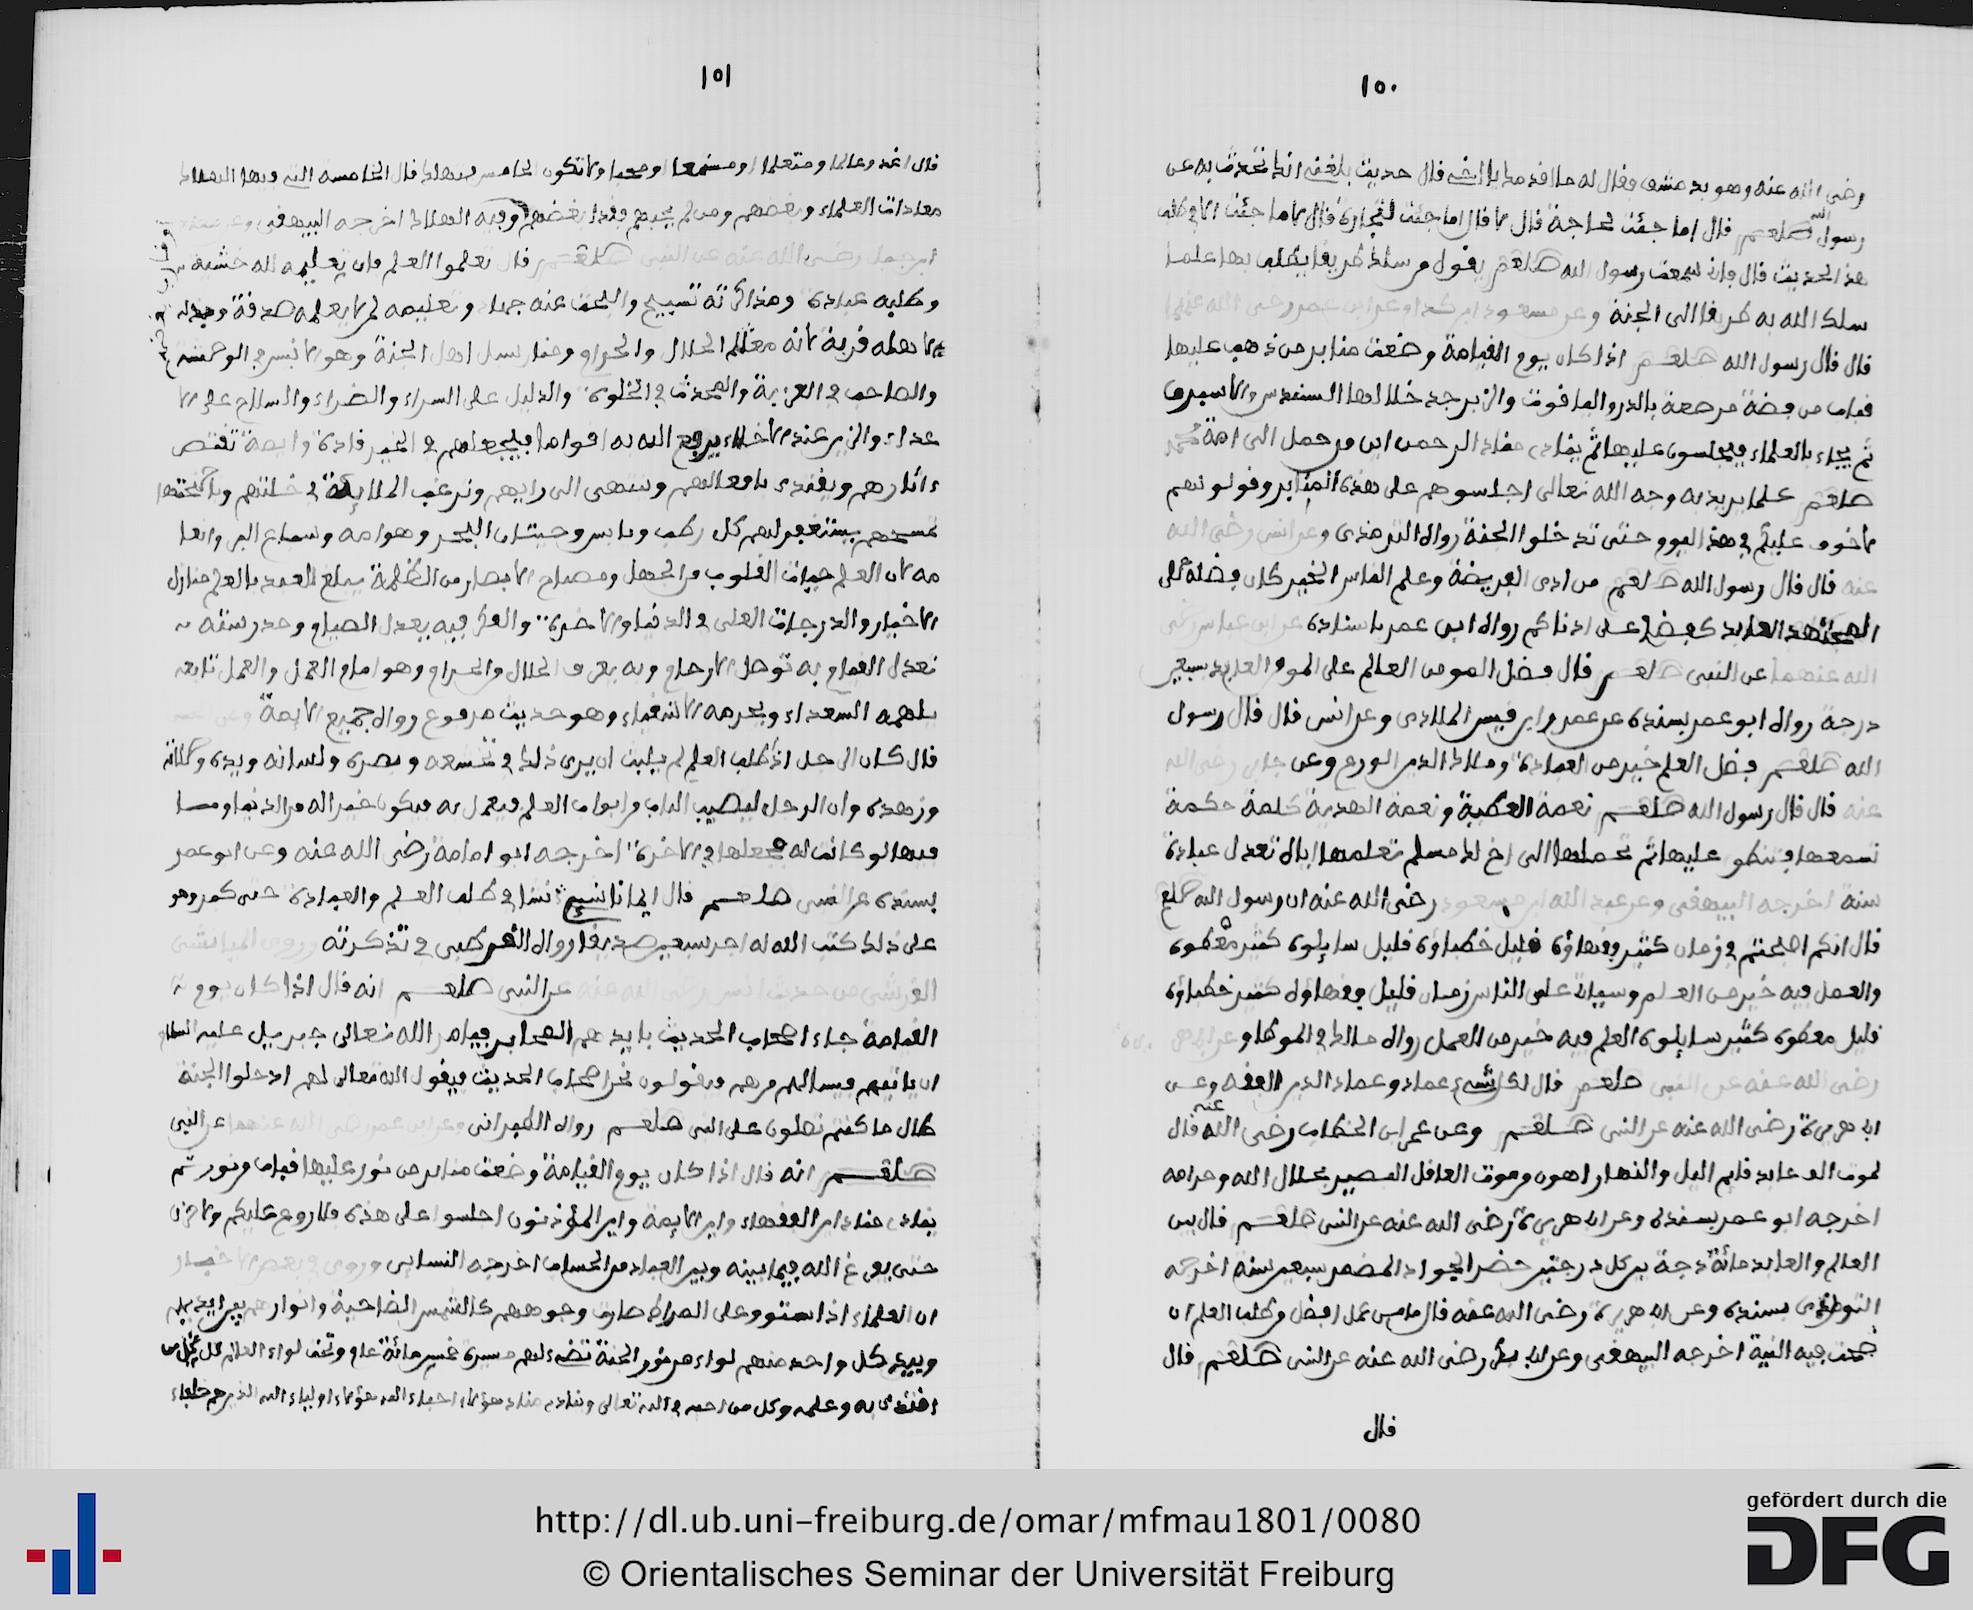 ١٥٠
رضي الله عنه وهو بدمشق فقال له ما اقدمك يا اخي قال حديث بلغني انك تحدث به عن
رسول الله صلعم قال اما جئت لحاجة قال لا قال اما جئت لتجارة قال لا ما جئت الا في طلب
هذا الحديث قال فاني سمعت رسول الله صلعم يقول من سلك طريقا يطلب بها علما
سلك الله به طريقا الى الجنة وعن مسعود ابن عمر رضي الله عنهما
قال قال رسول الله صلعم اذا كان يوم القيامة وضعت منابر من ذهب عليها
قباب من فضة مرصعة بالدر والياقوت والزبرجد خلالها السندس والاستبرق
ثم يجاء بالعلماء فيجلسون عليها ثم ينادي مناد الرحمن اين من حمل الى امة محمد
صلعم علما يريد به وجه الله تعالى اجلسوهم على هذه المنابر وقولو لهم
لا خوف عليكم في هذا اليوم حتى تدخلوا الجنة رواه الترمذي وعن انس رضي الله
عنه قال قال رسول الله صلعم من ادى الفريضة وعلم الناس الخير كان فضله على
المجتهد العابد كفضلي على ادناكم رواه ابن عمر باسناده عن ابن عباس رضي
الله عنهما عن النبي صلعم قال فضل المومن العالم على المومن العابد سبعين
درجة رواه ابو عمر بسنده عن عمر وابن قيس الملادي وعن انس قال قال رسول
الله صلعم فضل العلم خير من العبادة وملاك الدين الورع وعن جابر رضي الله
عنه قال قال رسول الله صلعم نعمة العطية ونعمة الهدية كلمة حكمة
تسمعها فتنطو عليها ثم تحملها الى اخ لك مسلم تعلمها اياه تعدل عبادة
سنة اخرجه البيهقي وعن عبد الله ابن مسعود رضي الله عنه ان رسول الله صلعم
قال انكم اصبحتم في زمان كثير فقهاؤه قليل خطباؤه قليل سايلوه كثير معطوه
والعمل فيه خير من العلم وسياتي على الناس زمان قليل فقهاؤه كثير خطباؤه
قليل معطوه كثير سايلوه العلم فيه خير من العمل رواه مالك في الموطا وعن ابي هريرة
رضي الله عنه عن النبي صلعم قال لكل شيء عماد وعماد الدين الفقه وعن
ابي هريرة رضي الله عنه عن النبي صلعم وعن عمر ابن الخطاب رضي الله عنه قال
لموت الف عابد قايم اليل والنهار اهون من موت العاقل البصير بحلال الله وحرامه
اخرجه ابو عمر بسنده وعن ابي هريرة رضي الله عنه عن النبي صلعم قال بين
العالم والعابد مائة درجة بين كل درجتين حضر الجواد المضمر سبعين سنة اخرجه
الترمذي بسنده وعن ابي هريرة رضي الله عنه قال ما من عمل افضل من طلب العلم ان
صحت فيه النية اخرجه البيهقي وعن ابي بكر رضي الله عنه عن النبي صلعم قال
قال
١٥١
قال اغد عالما او متعلما او مستمعا او محبا ولا تكون الخامس فتهلك قال الخامسة التي فيها الهلاك
معادات العلماء وبغضهم ومن لم يحبهم فقد ابغضهم وفيه الهلاك اخرجه البيهقي وعن
ابن جبل رضي الله عنه عن النبي صلعم قال تعلموا العلم فان تعليمه لله خشية
وطلبه عبادة ومذاكرته تسبيح والبحث عنه جهاد وتعليمه لمن لا يعلمه صدقة وبذله
لاهله قربة لانه معالم الحلال والحرام ومنار سبل اهل الجنة وهو الانيس في الوحشة
والصاحب في الغربة والمحدث في الخلوة والدليل على السراء والضراء والسلاح على الا
عداء والزين عند الاخلاء يرفع الله به اقواما فيجعلهم في الخير قادة وايمة تقتص
ءاثارهم ويقتدى بافعالهم وينتهى الى رايهم وترغب الملايكة في خلتهم وباجنحتها
تمسحهم يستغفر لهم كل رطب ويابس وحيتان البحر وهوامه وسباع البر وانعا
مه لان العلم حيات القلوب من الجهل ومصباح الابصار من الظلمة يبلغ العبد بالعلم منازل
الاخيار والدرجات العلى في الدنيا والاخرة والتفكر فيه يعدل الصيام ومدرسته
تعدل القيام به توصل الارحام وبه يعرف الحلال والحرام وهو امام العمل والعمل تابعه
يلهمه السعداء ويحرمه الاشقياء وهو حديث مرفوع رواه جميع الايمة وعن
قال كان الرجل اذا طلب العلم لم يلبث ان يرى ذلك في تخشعه وبصره ولسانه ويده وصلاته
وزهده وان الرجل ليصيب الباب من ابواب العلم فيعمل به فيكون خير اله من الدنيا وما
فيها لو كانت له فجعلها في الاخرة اخرجه ابو امامة رضي الله عنه وعن ابو عمر
بسنده عن النبي صلعم قال ايما ناشئ نشا في طلب العلم والعبادة حتى كبر وهو
على ذلك كتب الله له اجر سبعين صديقا رواه القرطبي في تذكرته وروى الميانشي
القرشي من حديث انس رضي الله عنه عن النبي صلعم انه قال اذا كان يوم
القيامة جاء اصحاب الحديث بايديهم المحابر فيامر الله تعالى جبريل عليه السلام
ان ياتيهم فيسالهم من هم فيقولون نحن اصحاب الحديث فيقول الله تعالى لهم ادخلوا الجنة
طال ما كنتم تصلون على النبي صلعم رواه الطبراني وعن ابن عمر رضي الله عنهما عن النبي
صلعم انه قال اذا كان يوم القيامة وضعت منابر من نور عليها قباب من نور ثم
ينادي مناد اين الفقهاء واين الايمة واين المؤذنون اجلسوا على هذه فلا روع عليكم ولا حزن
حتى يفرغ الله فيما بينه وبين العباد من الحساب اخرجه النسايي وروي في بعض الاخبار
ان العلماء اذا استوو على الصراط صارت وجوههم كالشمس الضاحية وانوارهم بين ايديهم
وبيد كل واحد منهم لواء من نور الجنة تضيء لهم مسيرة خمس مائة عام وتحت لواء العالم كل من
اقتدى به وعلمه وكل من احبه في الله تعالى وينادي مناد هؤلاء احباء الله هؤلاء اولياء الله الذين هم خلفاء
http://dl.ub.uni-freiburg.de/omar/mfmau1801/0080
© Orientalisches Seminar der Universität Freiburg
gefördert durch die
DFG